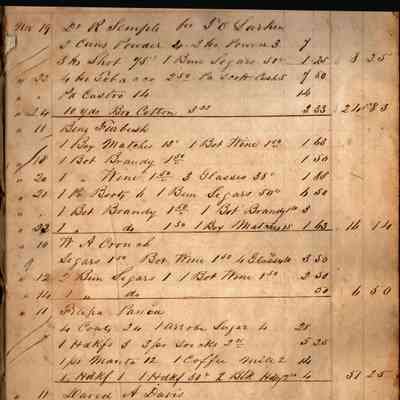 Nov 19 Dr R Semple
2 Cans Powder 4 2 lbs Powder 3 7
3 lbs Shot 75 1 Bun Segars 50 1 25 8 25
" 22 4 lbs Tobacco 250 Pa 7 50
Pa Castro 14 14
" 24 10 yds Bro Cotton 3 33 3 33
" 11 Benj Furbush
1 Box Matches 13 1 Bot Wine 1 50 1 63
" 18 1 Bot Brandy 1 50 1 50
" 20 1 " Wine 1 50 3 Glasses 38 1 88
" 21 1 Pr Boots 4 1 Bun Segars 50 4 50
" 1 Bot Brandy 1 50 1 Bot Brandy 3
" 22 1 " do 1 50 1 Box Matches 13 1 63 16 14
" 10 W A Cronch
Segars 1 00 Bot Wine 1 50 4 3 50
" 12 2 Bun Segars 1 1 Bot Wine 1 50 2 50
" 14 1 " do 50 6 50
" 11 Felipe
4 Coats 24 1 Arrobe Sugar 4 28
1 Hdkfs 3 3 prs Socks 2 25 5 25
1 ps Manta 12 1 Coffee Mill 2 14
1 Hdkf 1 1 Hdkf 50 2 Blk Hdkfs 4 51 25
" 11 David A Davis